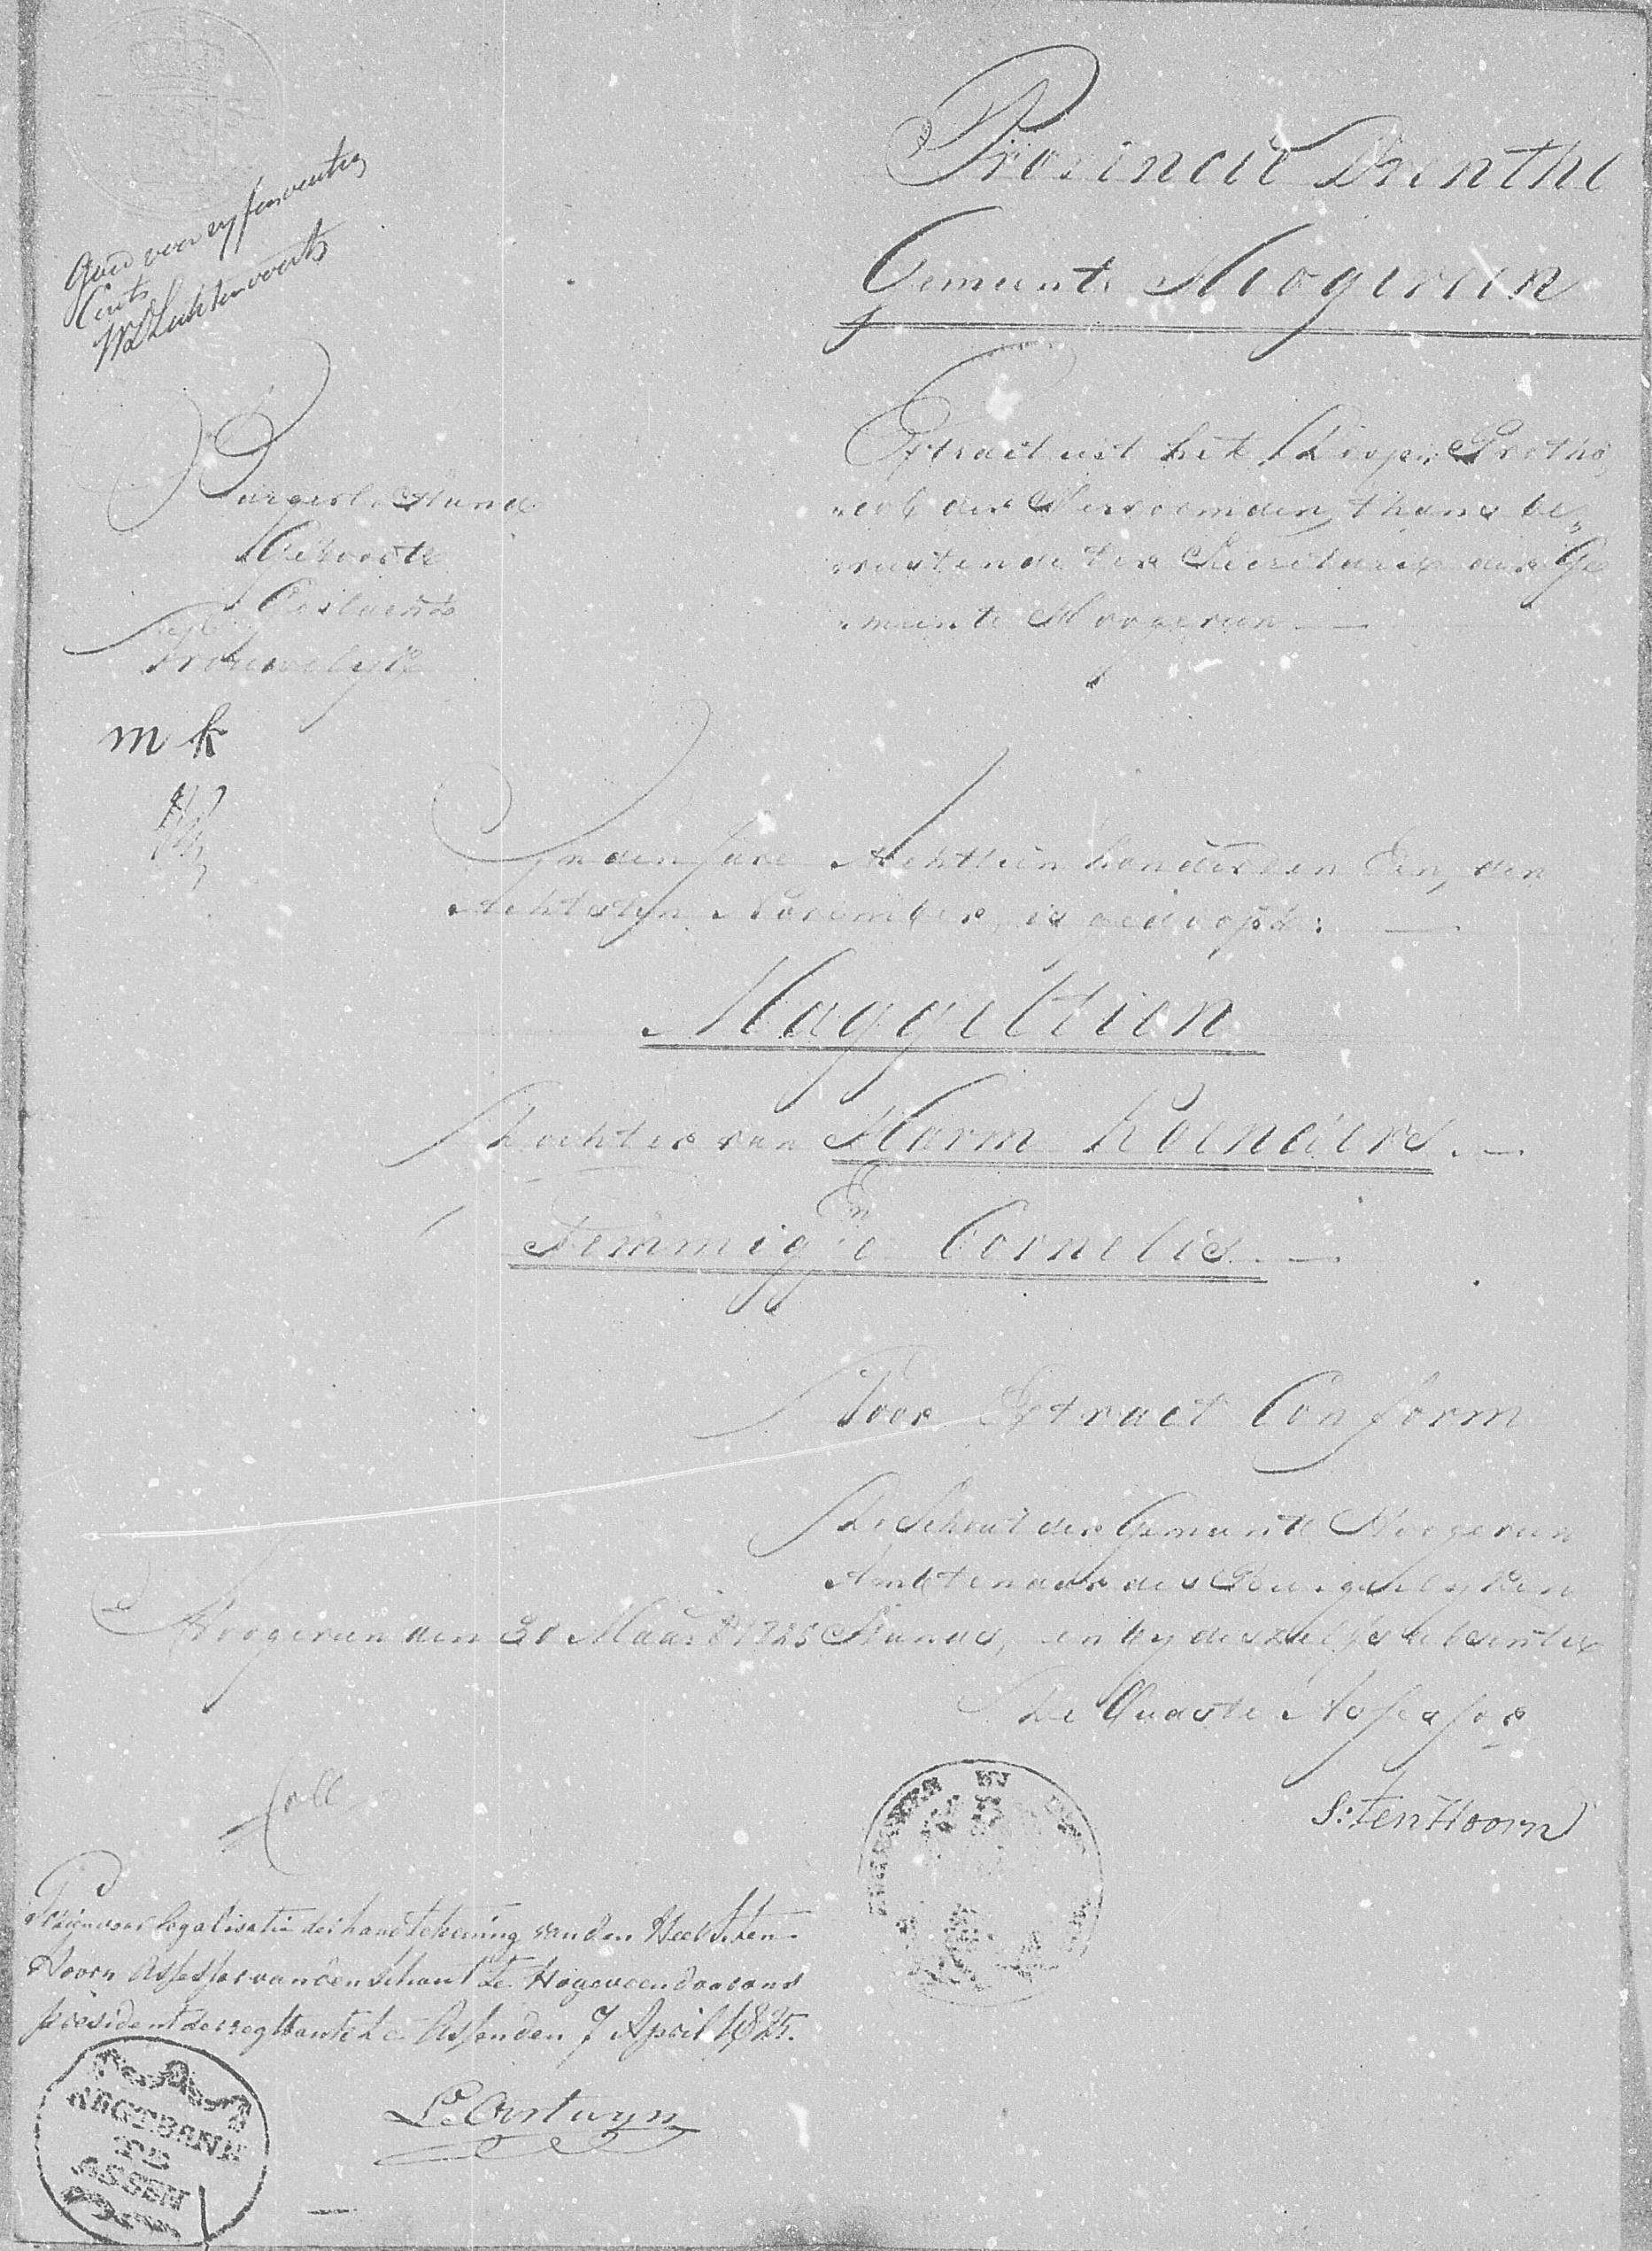 Provincie Drenthe
Gemeente Hoogeveen
Goed voor vyfenveertig
Cents
Extract uit het Doop Protho
col der Hervormden, thans be„
rustende ter Secretarie der Ge
meente Hoogeveen
Burgerl. Stand
Geboorte
Vrouwelyk
m k
In den Jare Achttien honderd en Een, den
Achtsten November, is gedoopt:
Maggeltien
Dochter van Harm Koenders.
En
Femmigje Cornelis
Voor Extract Conform
De Schout der Gemeente Hoogeveen
Ambtenaar des Burgerlyken
Hoogeveen den 30 Maart 1825 Stands, en by deszelfs absentie
De Oudste Assessor
S: ten Hoorn
Coll
Gezien voor legalisatie der handtekening van den Heer S. ten
Hoorn Assessor van den Schout te Hogeveen door ons
president der regtbank te Assen den 7 April 1825.
L. Oostwyn
REGTBANK
TE
ASSEN